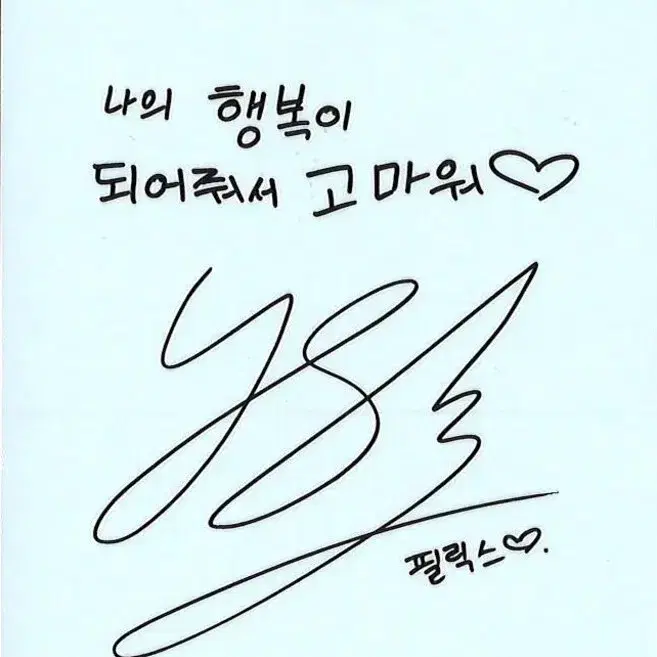 나의 행복이
되어줘서 고마워♡
필릭스♡.